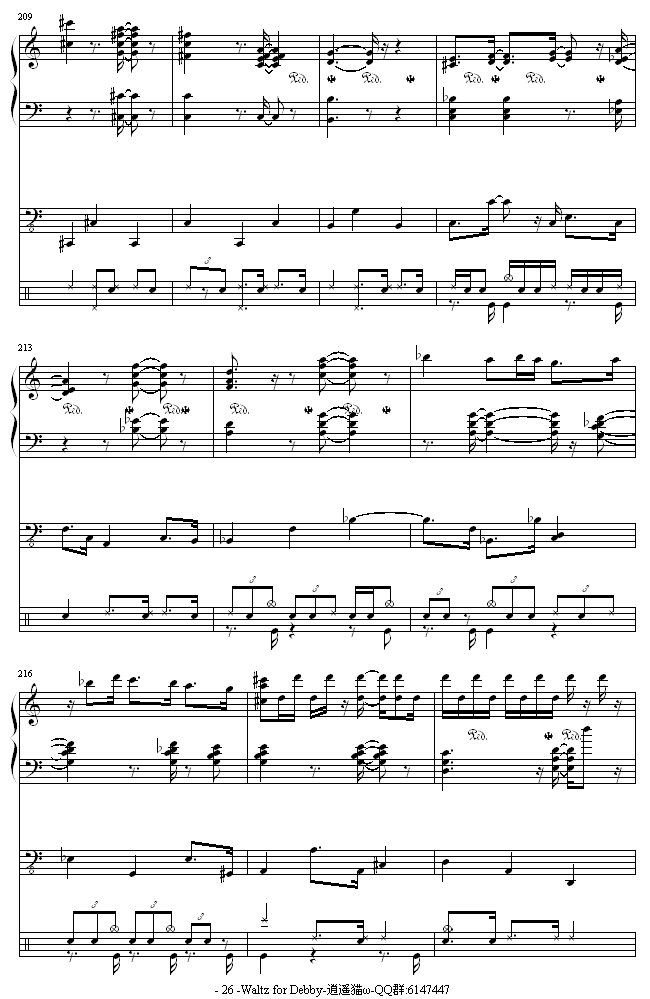 209
3
213
3 3 3 3
216
3 3 3
- 26 -Waltz for Debby-逍遥猫ω-QQ群:6147447